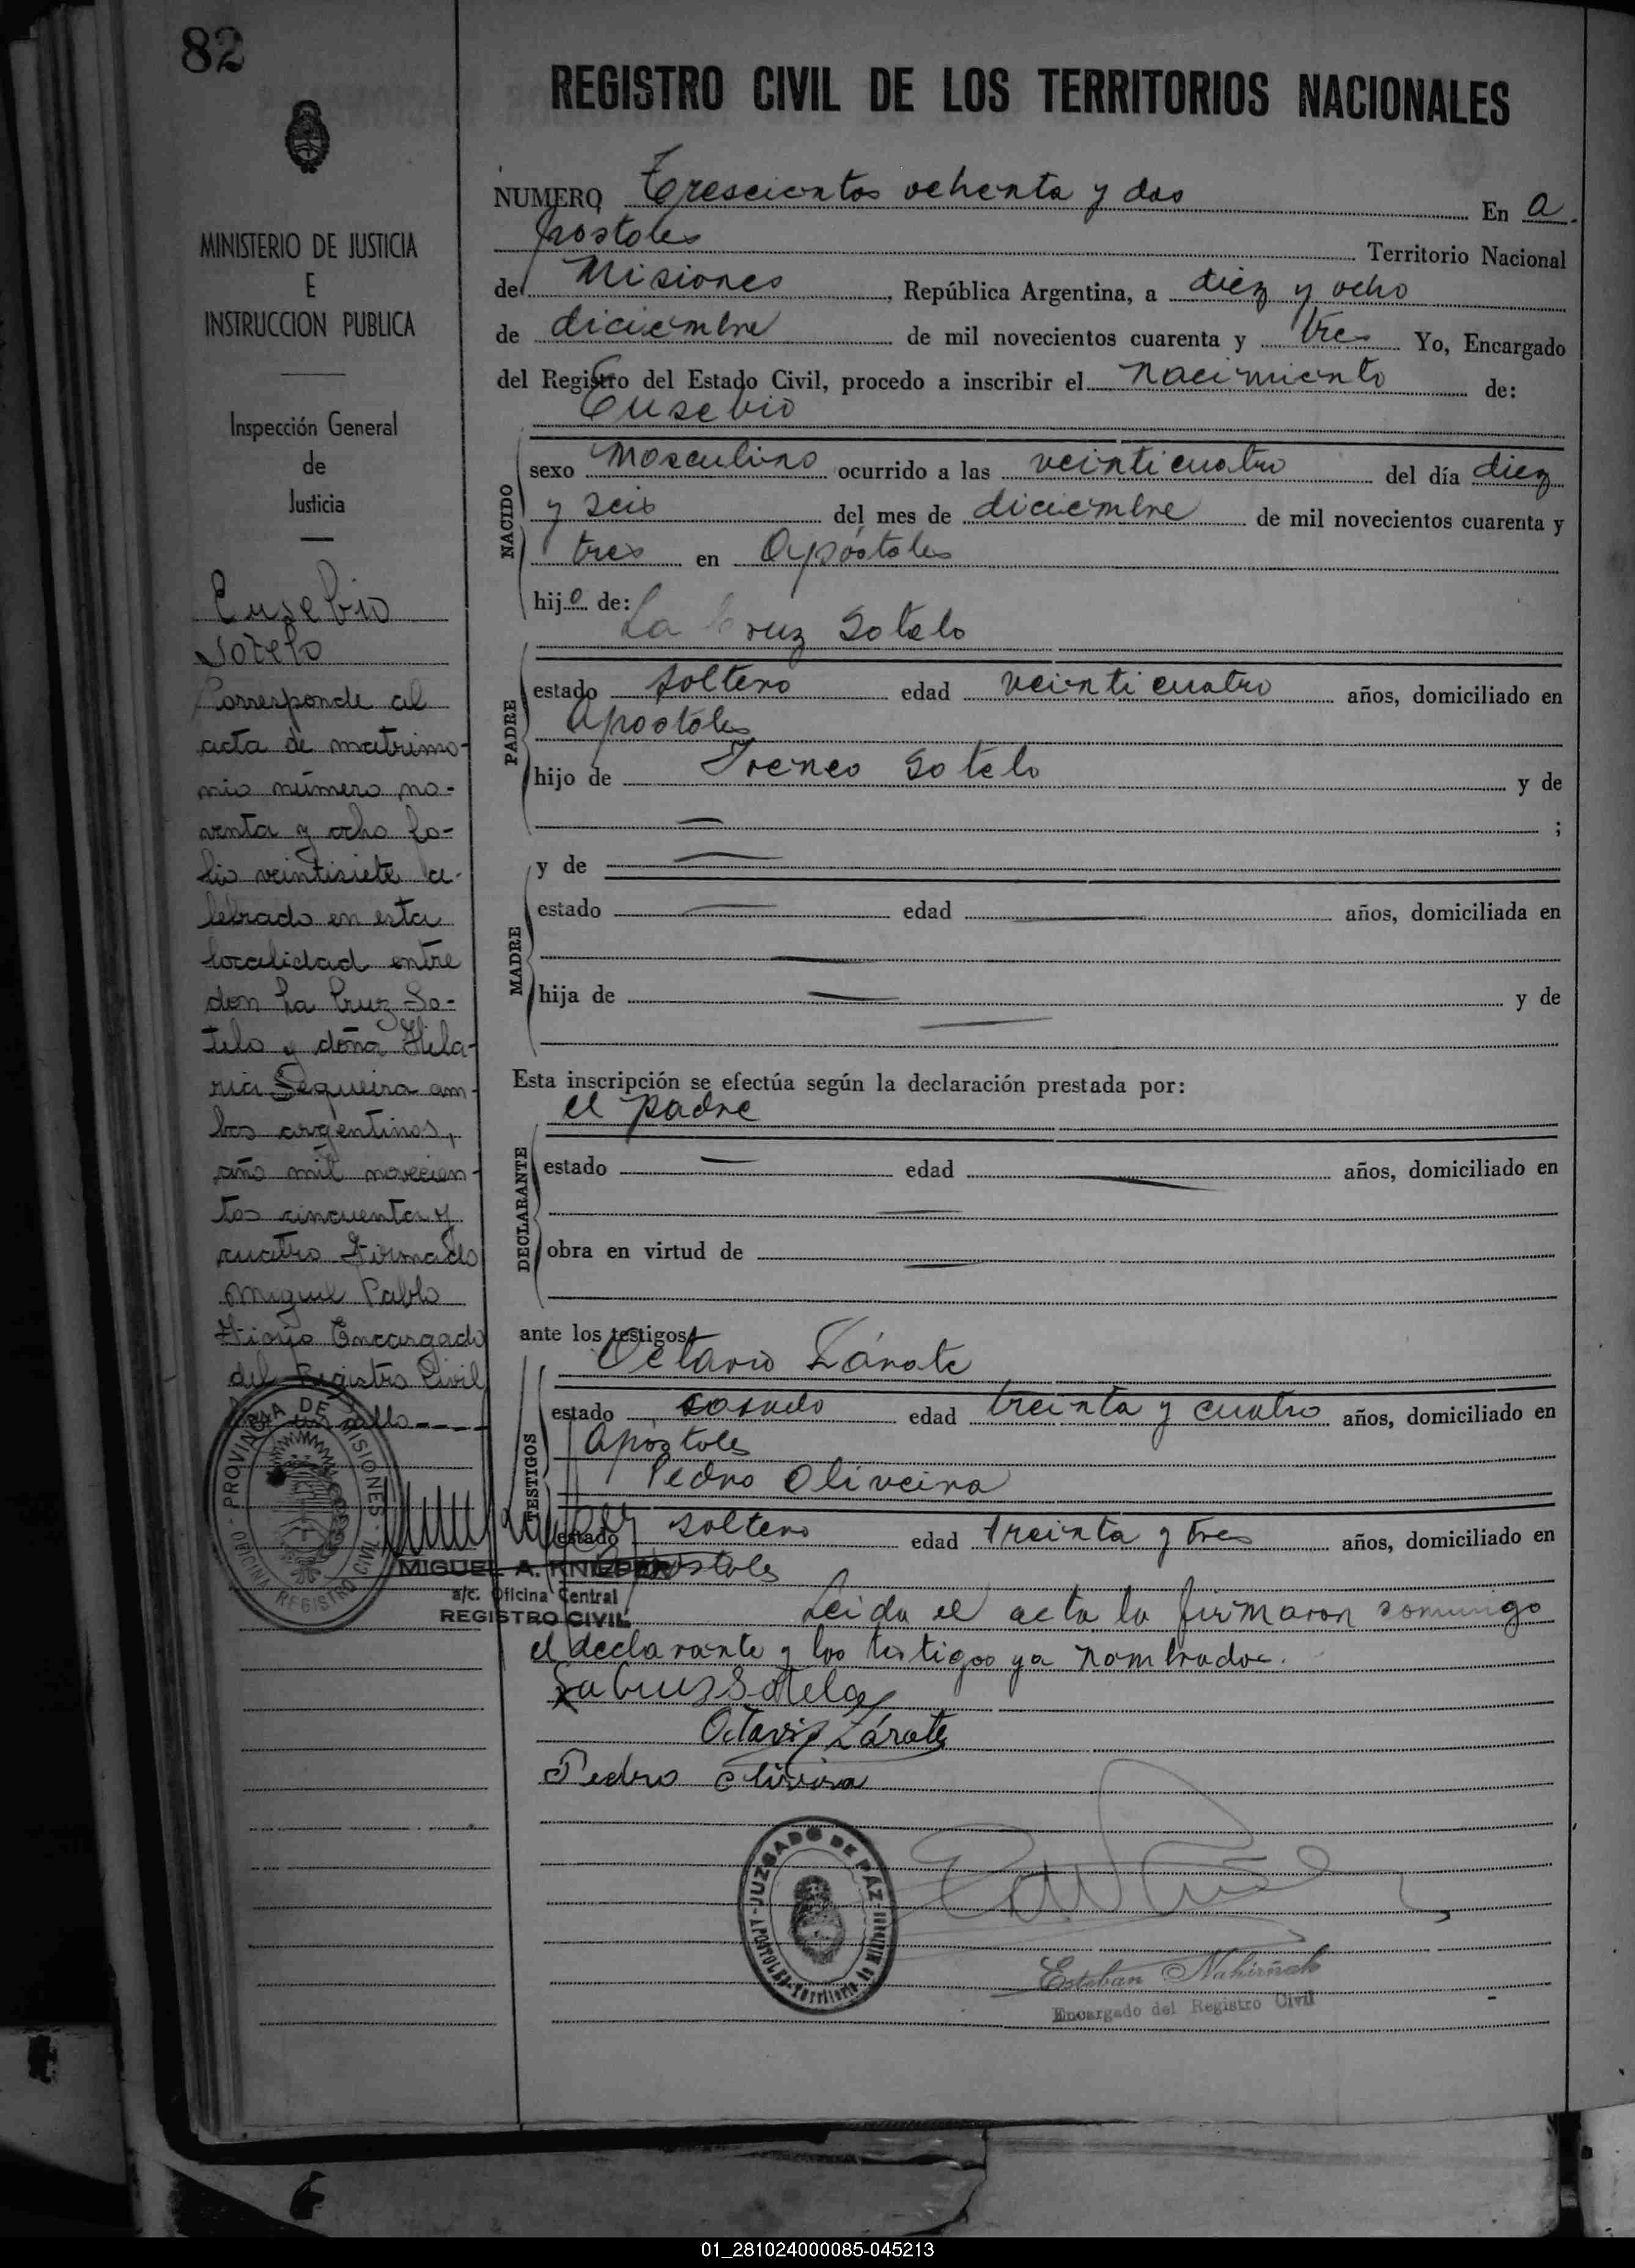 82
REGISTRO CIVIL DE LOS TERRITORIOS NACIONALES
MINISTERIO DE JUSTICIA
E
INSTRUCCION PUBLICA
Inspección General
de
Justicia
Eusebio
Sotelo
Corresponde al
acta de matrimo-
nio número no-
venta y ocho fo-
lio veintisiete ce-
lebrado en esta
localidad entre
don La Cruz So-
telo y doña Hila-
ria Sequeira am-
bos argentinos,
año mil novecien-
tos cincuenta y
cuatro Firmado
Miguel Pablo
Encargado
del Registro Civil
sello
PROVINCIA DE MISIONES
OFICINA REGISTRO CIVIL
MIGUEL A.
a/c. Oficina Central
REGISTRO CIVIL
NUMERO Trescientos ochenta y dos En A
póstoles Territorio Nacional
de Misiones, República Argentina, a diez y ocho
de diciembre de mil novecientos cuarenta y tres Yo, Encargado
del Registro del Estado Civil, procedo a inscribir el nacimiento de:
Eusebio
NACIDO
sexo masculino ocurrido a las veinticuatro del día diez
y seis del mes de diciembre de mil novecientos cuarenta y
tres en Apóstoles
hijo de:
La Cruz Sotelo
PADRE
estado soltero edad veinticuatro años, domiciliado en
Apostoles
hijo de Ireneo Sotelo y de
— ;
y de —
MADRE
estado — edad — años, domiciliada en
—
hija de — y de
—
Esta inscripción se efectúa según la declaración prestada por:
el padre
DECLARANTE
estado — edad — años, domiciliado en
—
obra en virtud de —
ante los testigos:
Octavio Zárate
TESTIGOS
estado casado edad treinta y cuatro años, domiciliado en
Apóstoles
Pedro Oliveira
estado soltero edad treinta y tres años, domiciliado en
Apóstoles
Leida el acta la firmaron conmigo
el declarante y los testigos ya nombrados.
La Cruz Sotelo
Octavio Zárate
Pedro Oliveira
JUZGADO DE PAZ
APOSTOLES - Territorio de Misiones
Esteban Nahirñak
Encargado del Registro Civil
01_281024000085-045213